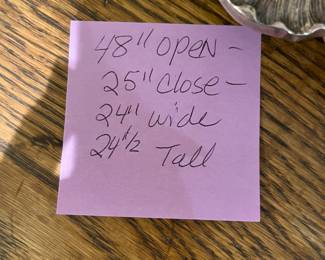 48" open -
25" close -
24" wide
24" 1/2 Tall